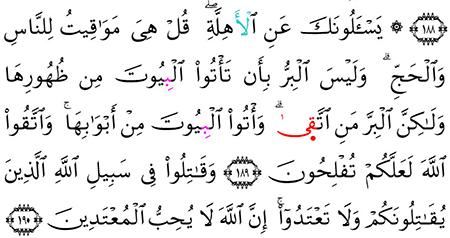 ﴿١٨٨﴾ ۞ يَسْـَٔلُونَكَ عَنِ ٱلْأَهِلَّةِ ۖ قُلْ هِىَ مَوَٰقِيتُ لِلنَّاسِ
وَٱلْحَجِّ ۗ وَلَيْسَ ٱلْبِرُّ بِأَن تَأْتُوا۟ ٱلْبِيُوتَ مِن ظُهُورِهَا
وَلَـٰكِنَّ ٱلْبِرَّ مَنِ ٱتَّقَىٰ ۗ وَأْتُوا۟ ٱلْبِيُوتَ مِنْ أَبْوَٰبِهَا ۚ وَٱتَّقُوا۟
ٱللَّهَ لَعَلَّكُمْ تُفْلِحُونَ ﴿١٨٩﴾ وَقَـٰتِلُوا۟ فِى سَبِيلِ ٱللَّهِ ٱلَّذِينَ
يُقَـٰتِلُونَكُمْ وَلَا تَعْتَدُوٓا۟ ۚ إِنَّ ٱللَّهَ لَا يُحِبُّ ٱلْمُعْتَدِينَ ﴿١٩٠﴾